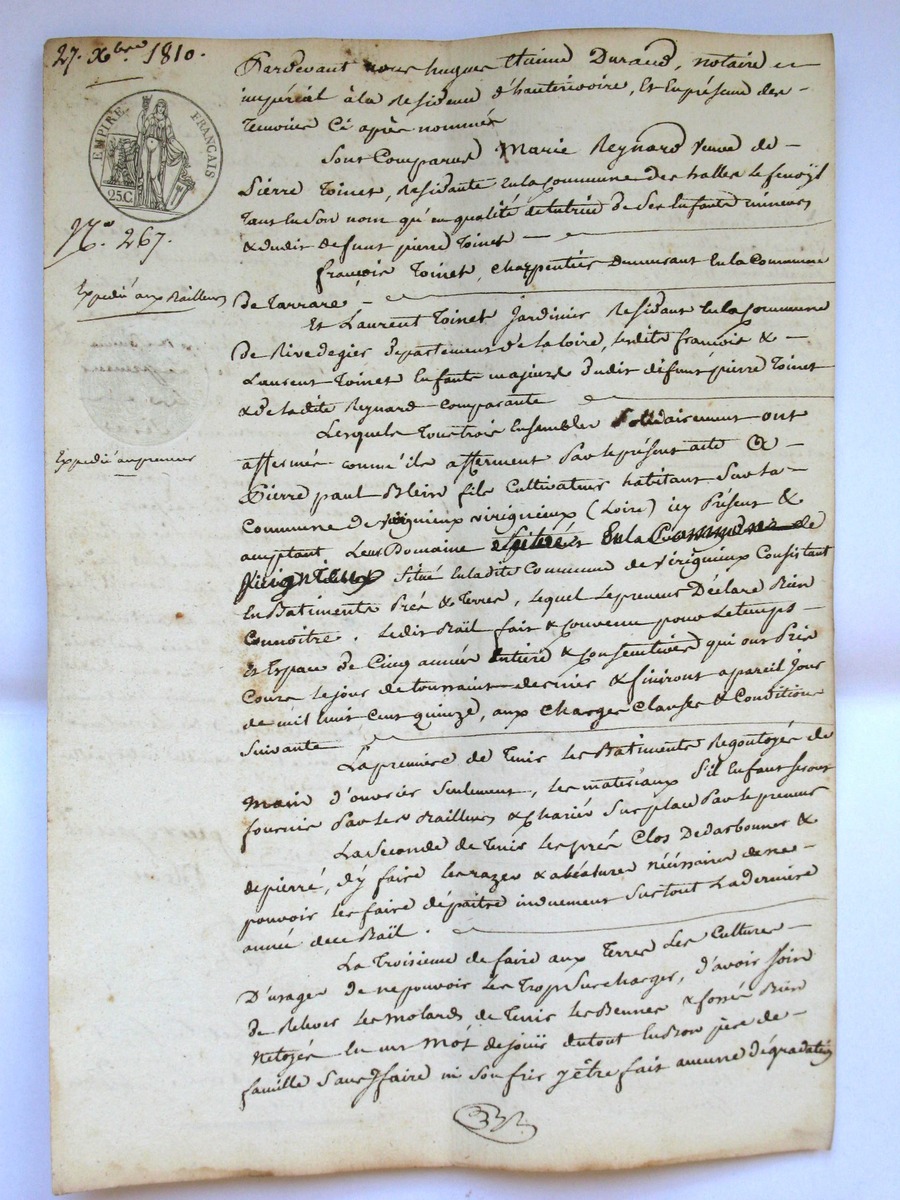 27. Xbre 1810.
EMPIRE FRANÇAIS
25.C
N.o 267.
Expedié aux Bailleurs
Expedié au preneur
Pardevant nous hugues Etienne Durand, notaire
imperial à la Residence d'hauterivoire, Et En présence des
Temoins Ci après nommés
Sont Comparus Marie Reynard veuve de
Pierre Toinet, Residante En la Commune des halles le fenoÿl
Tant En Son nom qu'en qualité de tutrice de Ses Enfants mineurs
& dudit defunt pierre Toinet
françois Toinet, charpentier Demeurant En la Commune
de Tarrare
Et Laurent Toinet Jardinier Residant En la Commune
de Rivedegier departement de la loire, lesdits françois &
Laurent Toinet Enfants majeurs dudit défunt pierre Toinet
& de ladite Reynard comparante
Lesquels Tous trois Ensembles Solidairement ont
affermés comm'ils afferment Par le présent acte a
Pierre paul Blein fils Cultivateur habitant Sur la
Commune de virigneux (Loire) icy Présent &
acceptant Leur Domaine Situé En la Commune de
Situé En ladite Commune de virigneux Consistant
En Batiments Prés & Terres, lequel Le preneur Déclare Bien
Connoitre. Ledit Baïl fait & Convenu pour Le temps
Et Espace de Cinq années Entières & Consécutives qui ont Pris
Cours le jour de toussaint dernier & finiront a pareil Jour
de mil huit Cent quinze, aux Charges Clauses & Conditions
Suivantes
La premiere de Tenir les Batiments Regoutoyés de
Main d'ouvrier Seulement, les materiaux S'il En faut Seront
fournis Par les Bailleurs & chariés Sur place Par le preneur
La Seconde de Tenir les prés Clos De darbounes &
de pierré, d'y faire les razes & abéatures nécéssaires de ne
pouvoir les faire dépaitre induement Surtout La derniere
année du Baïl.
La Troisieme de faire aux Terres les Cultures
D'usages de ne pouvoir les Trop Surcharger, d'avoir soin
de Relever les molards de Tenir les Bennes & fossés Bien
Netoyés En un Mot de jouïr du tout En Bon père de
famille Sans y faire ni Soufrir y être fait aucune dégradation